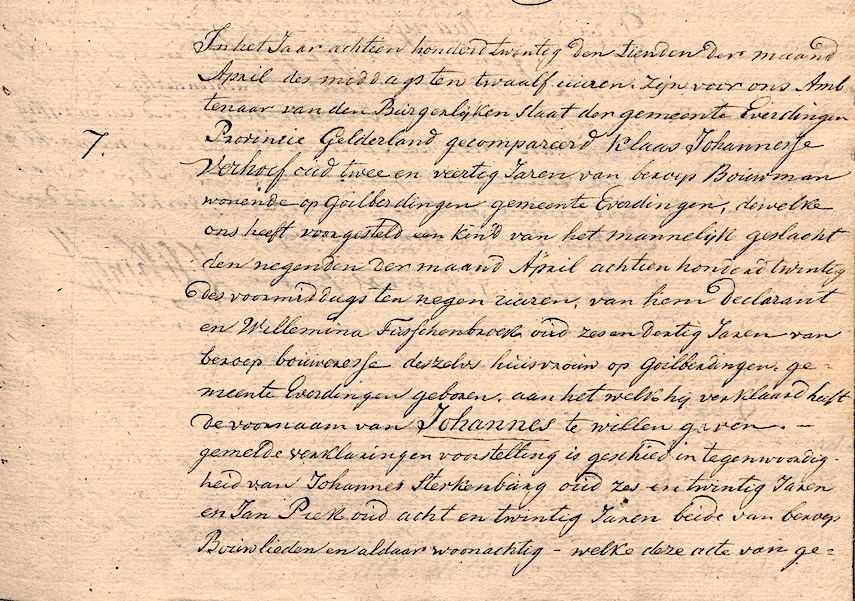 In het Jaar achtien honderd twintig den tienden der maand
April des middags ten twaalf uuren. zijn voor ons Amb
tenaar van den Burgerlijken staat der gemeente Everdingen
Provincie Gelderland, gecompareerd Klaas Johannesse
7. Verhoef oud twee en veertig Jaren van beroep Bouwman
wonende op Goilberdingen gemeente Everdingen, dewelke
ons heeft voorgesteld een kind van het mannelijk geslacht
den negenden der maand April achtien honderd twintig
des voormiddags ten negen uuren, van hem Declarant
en Willemina Fusschenbroek oud zes en dertig Jaren van
beroep bouweresse deszelvs huisvrouw op Goilberdingen. ge=
meente Everdingen geboren, aan het welk hij verklaard heeft
de voornaam van Johannes te willen geven. —
gemelde verklaringen voorstelling is geschied in tegenwoordig-
heid van Johannes Sterkenburg oud zes en twintig Jaren
en Jan Piek oud acht en twintig Jaren beide van beroep
Bouwlieden en aldaar woonachtig - welke deze acte van ge=